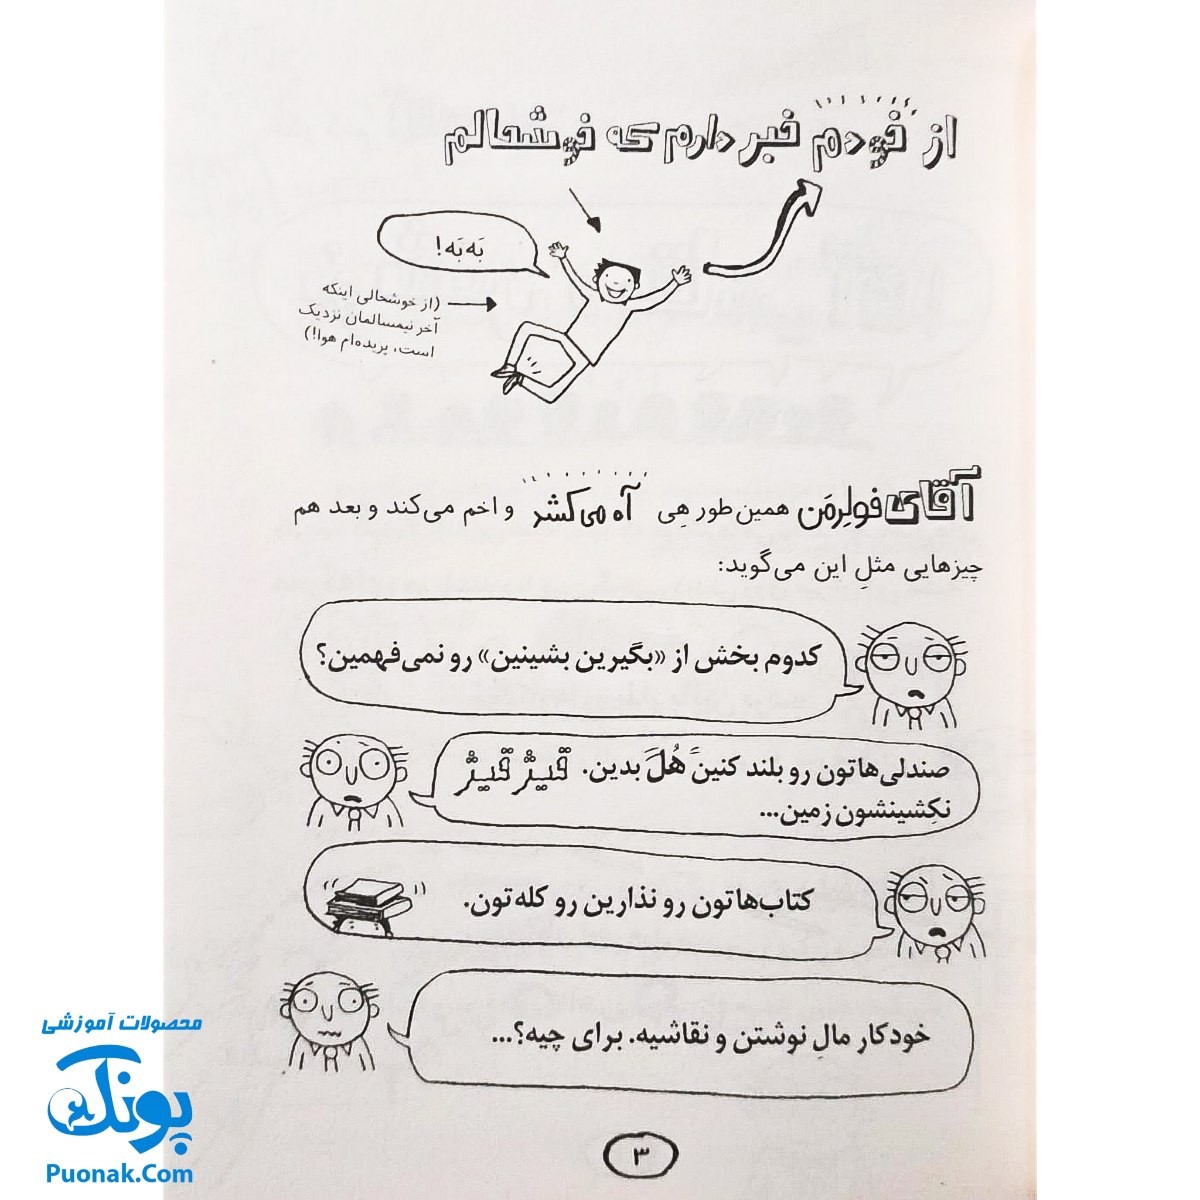 از خودم خبر دارم که خوشحالم
بَه بَه!
(از خوشحالی اینکه
آخر نیمسالمان نزدیک
است، پریده‌ام هوا!)
آقای فولِرمَن همین‌طور هِی آه می‌کشد و اخم می‌کند و بعد هم
چیزهایی مثلِ این می‌گوید:
کدوم بخش از «بگیرین بشینین» رو نمی‌فهمین؟
صندلی‌هاتون رو بلند کنین هُل بدین. قیژ قیژ
نکِشینشون زمین...
کتاب‌هاتون رو نذارین رو کله‌تون.
خودکار مالِ نوشتن و نقاشیه. برای چیه؟...
۳
محصولات آموزشی
پونک
Puonak.Com